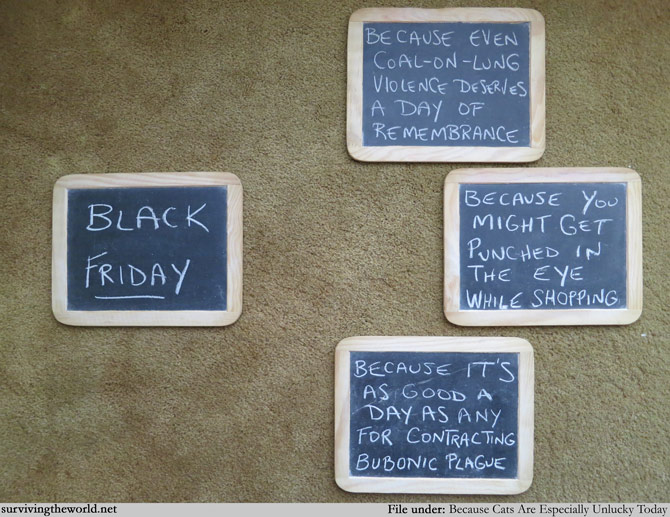 BLACK
FRIDAY
BECAUSE EVEN
COAL-ON-LUNG
VIOLENCE DESERVES
A DAY OF
REMEMBRANCE
BECAUSE YOU
MIGHT GET
PUNCHED IN
THE EYE
WHILE SHOPPING
BECAUSE IT'S
AS GOOD A
DAY AS ANY
FOR CONTRACTING
BUBONIC PLAGUE
survivingtheworld.net
File under: Because Cats Are Especially Unlucky Today